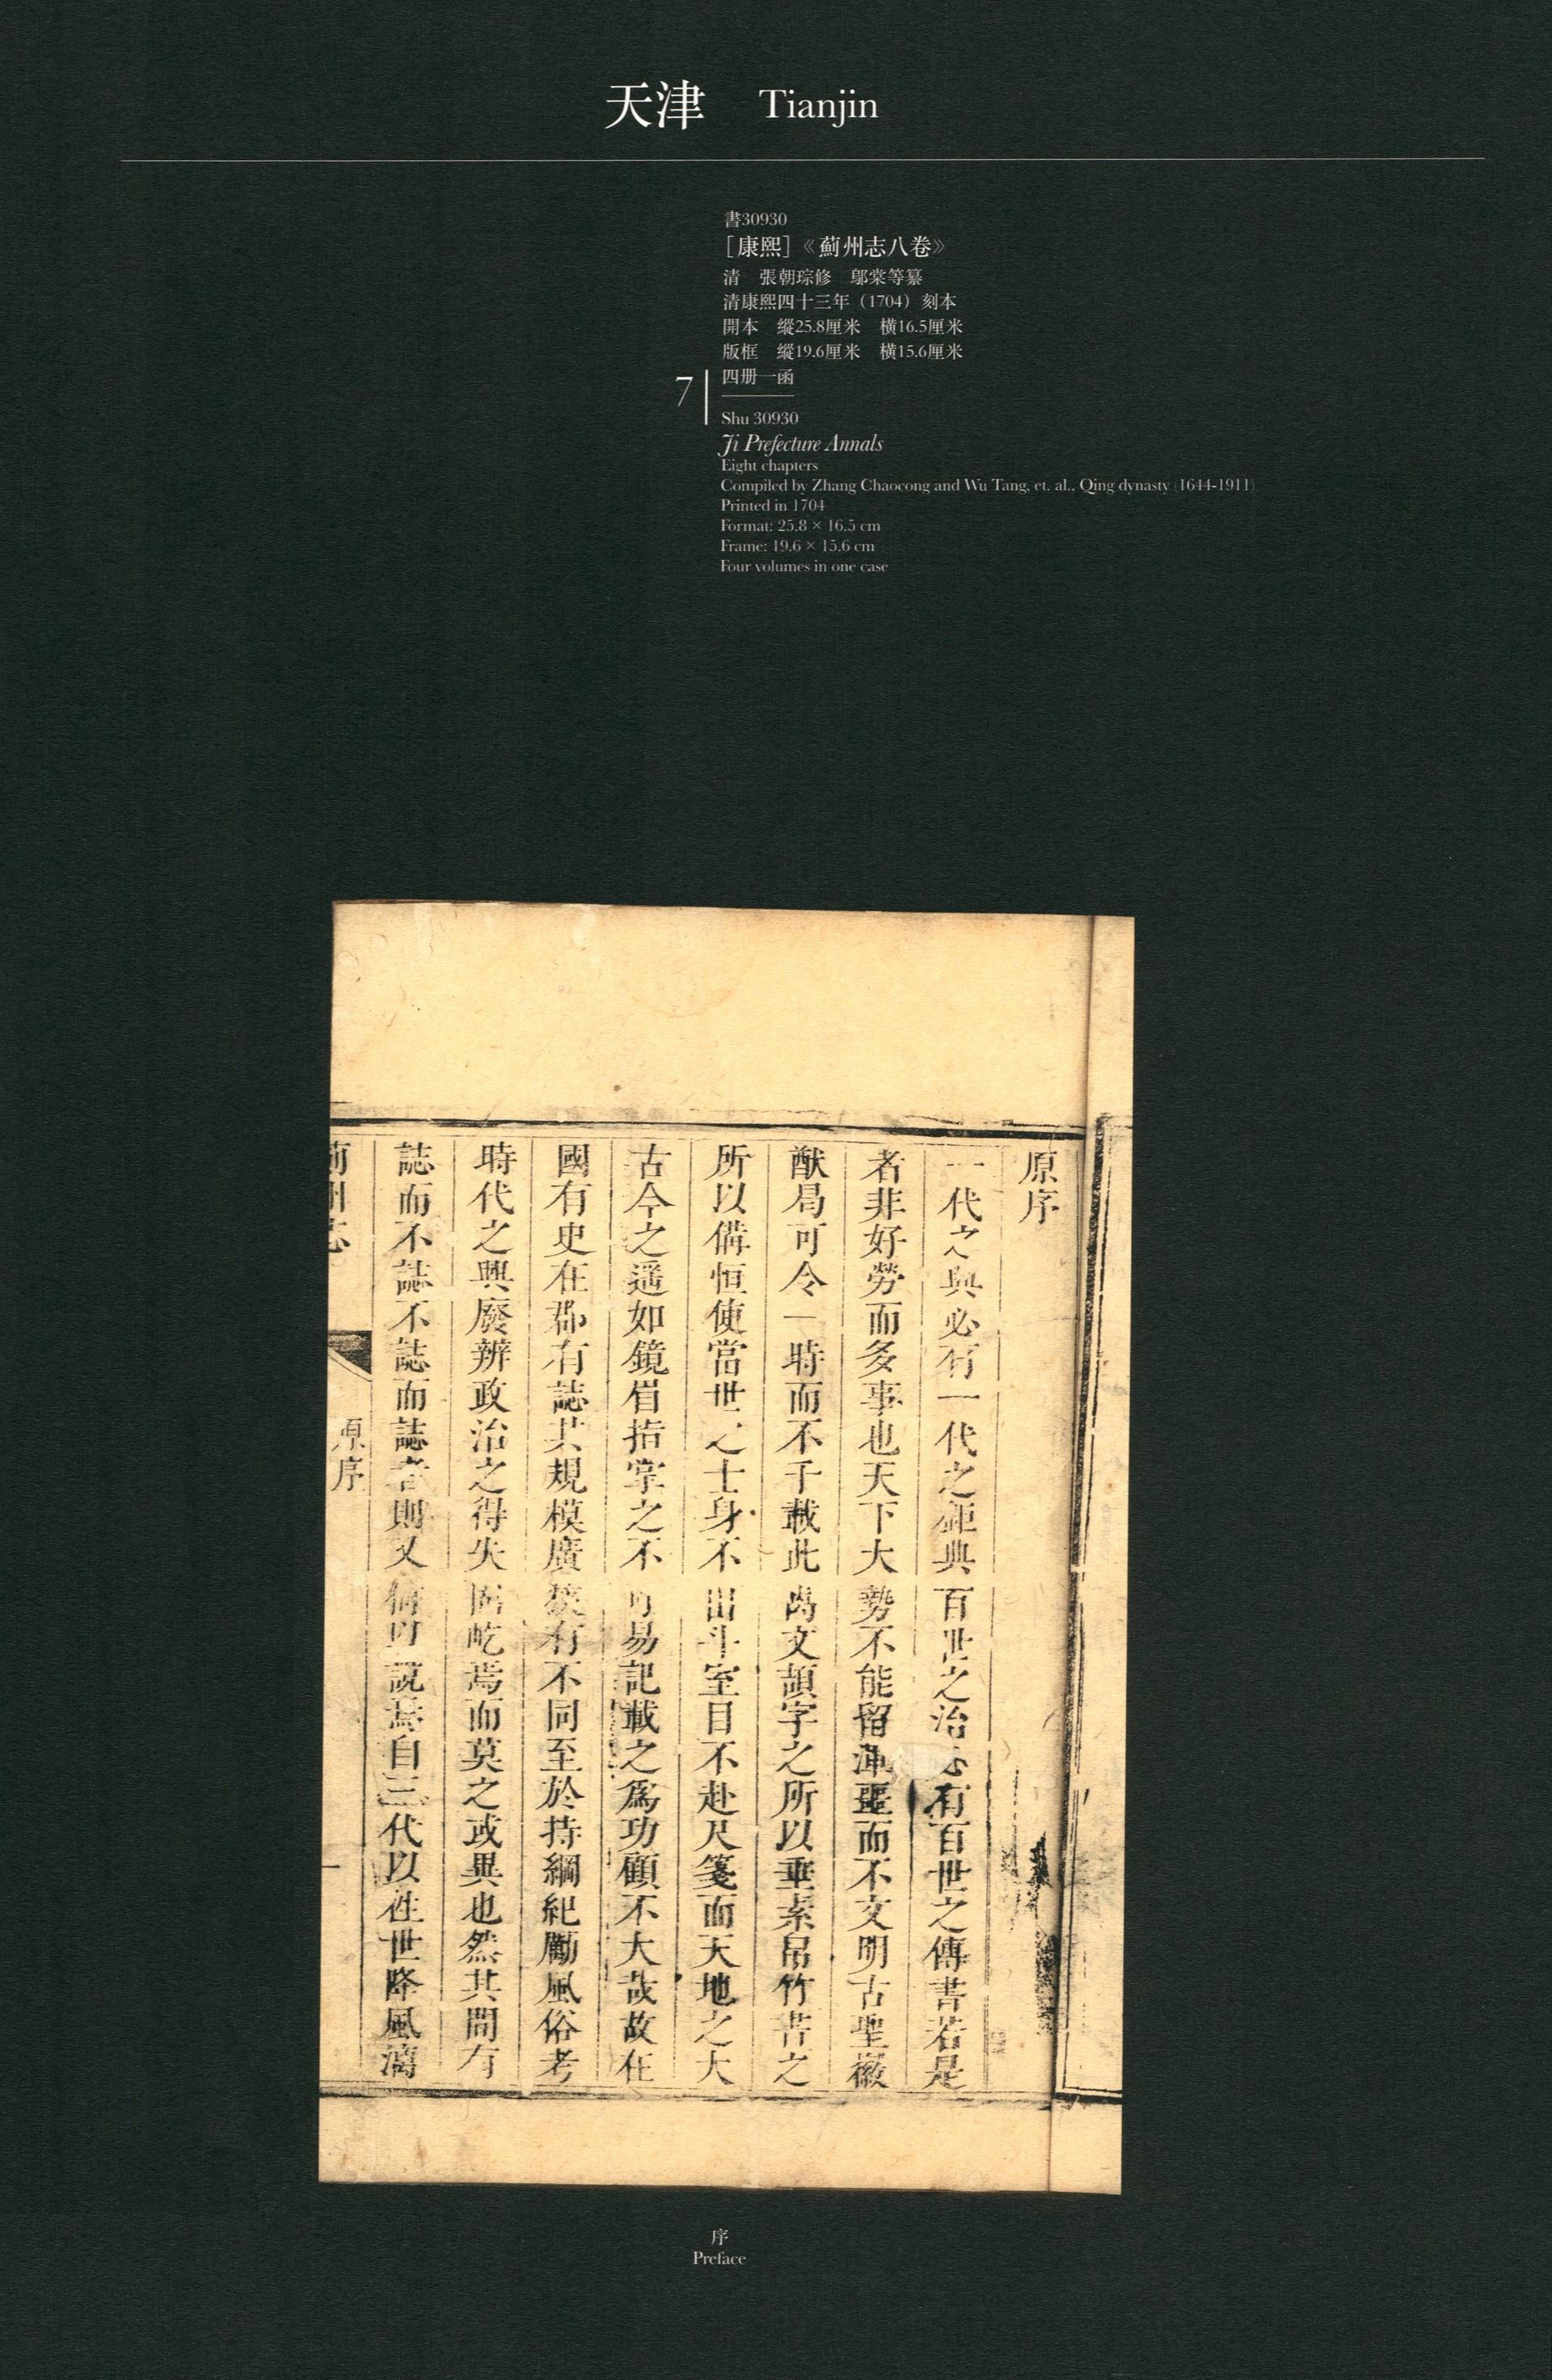 天津 Tianjin
書30930
［康熙］《薊州志八卷》
清 張朝琮修 鄔棠等纂
清康熙四十三年（1704）刻本
開本 縱25.8厘米 橫16.5厘米
版框 縱19.6厘米 橫15.6厘米
四册一函
7
Shu 30930
Ji Prefecture Annals
Eight chapters
Compiled by Zhang Chaocong and Wu Tang, et. al., Qing dynasty (1644-1911)
Printed in 1704
Format: 25.8 × 16.5 cm
Frame: 19.6 × 15.6 cm
Four volumes in one case
原序
一代之興必有一代之鉅典百世之治必有百世之傳書若是
者非好勞而多事也天下大勢不能留渾噩而不文明古聖徽
猷局可令一時而不千載此尚文頡字之所以垂素帛竹書之
所以備恒使當世之士身不出斗室目不赴尺箋而天地之大
古今之遥如鏡眉指掌之不可易記載之為功顧不大哉故在
國有史在郡有誌其規模廣狹有不同至於持綱紀勵風俗考
時代之興廢辨政治之得失固屹焉而莫之或異也然其間有
誌而不誌不誌而誌者則又何可說焉自三代以徃世降風漓
薊州志 原序
序
Preface